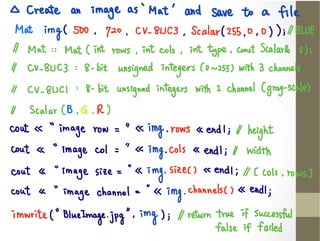 △ Create an image as 'Mat' and save to a file
Mat img( 500 , 720 , CV_8UC3 , Scalar(255,0,0) ); // BLUE
// Mat :: Mat ( int rows , int cols , int type , const Scalar& s );
// CV_8UC3 : 8-bit unsigned integers (0~255) with 3 channels
// CV_8UC1 : 8-bit unsigned integers with 1 channel (gray-scale)
// Scalar (B, G, R)
cout << "image row = " << img.rows << endl; // height
cout << "image col = " << img.cols << endl; // width
cout << "image size = " << img.size() << endl; // [cols, rows]
cout << "image channel = " << img.channels() << endl;
imwrite("BlueImage.jpg", img); // return true if successful
false if failed